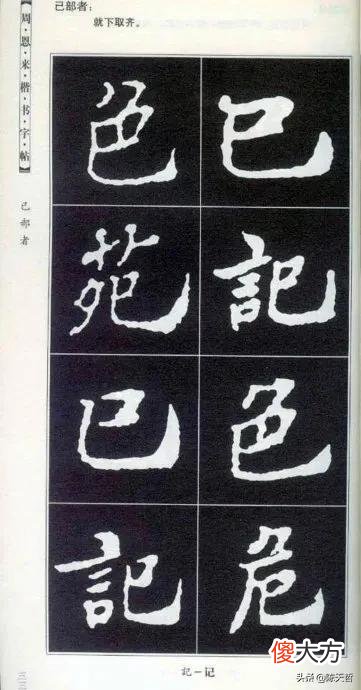 已部者：
就下取齐。
【周·恩·来·楷·书·字·帖】
已部者
巳
記
色
危
色
苑
巳
記
記–记
傻大方
头条@陈天哲